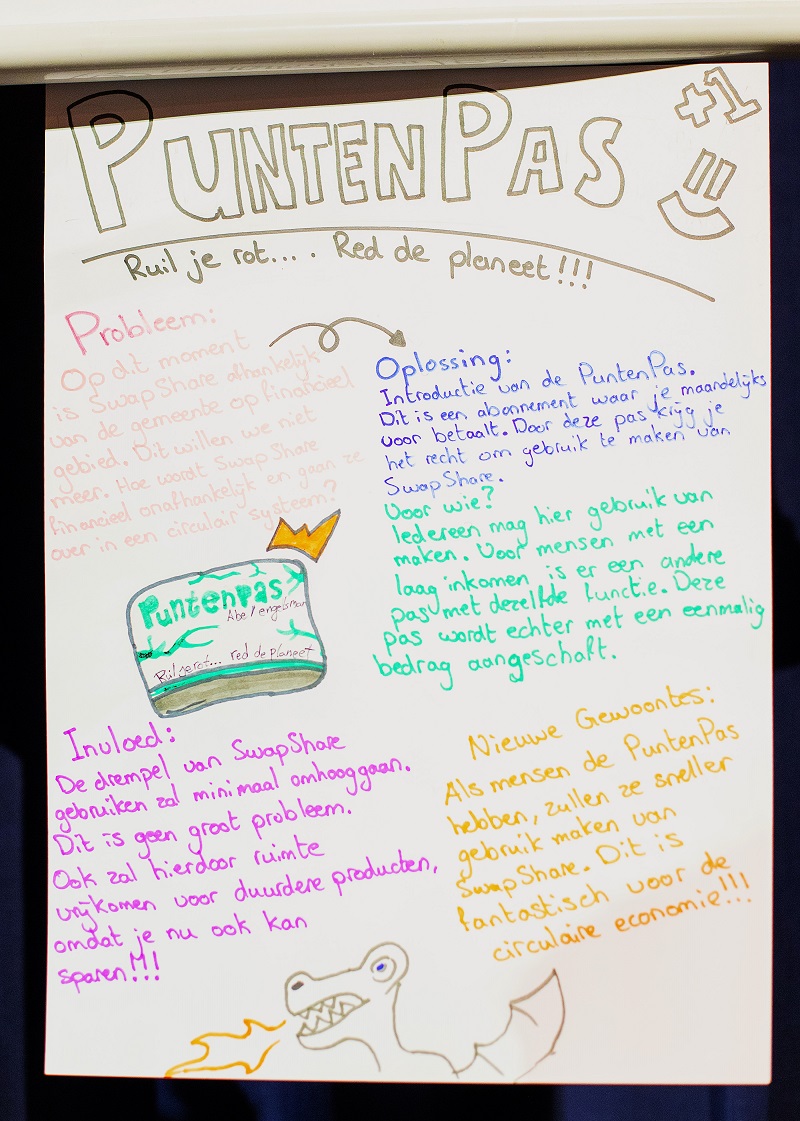 PUNTENPAS
+1
Ruil je rot.... Red de planeet!!!
Probleem:
Op dit moment
is SwapShare afhankelijk
van de gemeente op financieel
gebied. Dit willen we niet
meer. Hoe wordt SwapShare
financieel onafhankelijk en gaan ze
over in een circulair systeem?
Oplossing:
Introductie van de PuntenPas.
Dit is een abonnement waar je maandelijks
voor betaalt. Door deze pas krijg je
het recht om gebruik te maken van
SwapShare.
Voor wie?
Iedereen mag hier gebruik van
maken. Voor mensen met een
laag inkomen is er een andere
pas met dezelfde functie. Deze
pas wordt echter met een eenmalig
bedrag aangeschaft.
Puntenpas
Abel engelsman
Ruil je rot... red de planeet
Invloed:
De drempel van SwapShare
gebruiken zal minimaal omhooggaan.
Dit is geen groot probleem.
Ook zal hierdoor ruimte
vrijkomen voor duurdere producten,
omdat je nu ook kan
sparen!!!
Nieuwe Gewoontes:
Als mensen de PuntenPas
hebben, zullen ze sneller
gebruik maken van
SwapShare. Dit is
fantastisch voor de
circulaire economie!!!